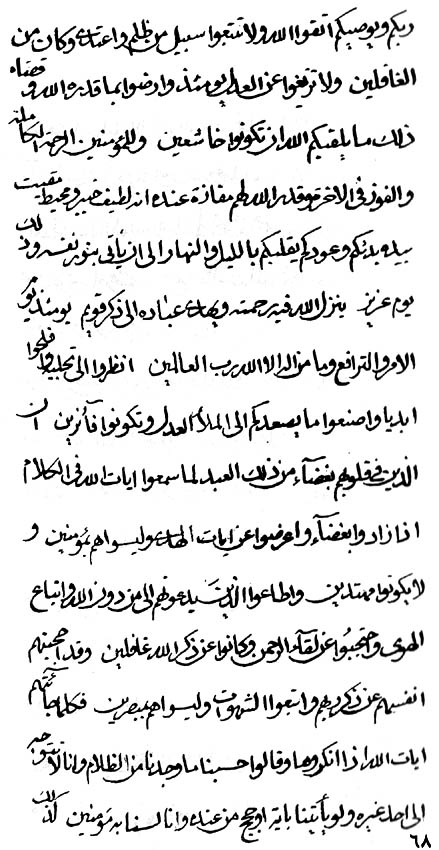 ربكم ويوصيكم اتقوا الله ولا تتبعوا سبيل من ظلم واعتدى وكان من
الغافلين ولا تزيغوا عن العدل يومئذ وارضوا بما قدره الله وقضاه
ذلك ما يلقيكم الله ان تكونوا خاشعين وللمؤمنين الرحمة الكاملة
والفوز في الاخرة وقدر الله لهم مفازة عنده انه لطيف خبير ومحيط مقيت
بيده بدئكم وعودكم يقلبكم بالليل والنهار الى ان يأتي بنور نفسه وذلك
يوم عزيز ينزل الله فيه رحمته ويهدي عباده الى ذكر قويم يومئذ
الامر والترافع وما من اله الا الله رب العالمين انظروا الى
ابديا واصنعوا ما يصعدكم الى الملأ العدل وتكونوا فائزين ان
الذين في قلوبهم بغضآء من ذلك العبد لما سمعوا ايات الله في الكلام
اذا زادوا بغضآء واعرضوا عن ايات الهدى وليسوا هم بمؤمنين و
لا يكونوا مهتدين واطاعوا الذين يدعونهم الى من دون الله واتباع
الهوى واحتجبوا عن لقآء الرحمن وكانوا عن ذكر الله غافلين وقد احجبتهم
انفسهم عن ذكر ربهم واتبعوا الشهوات وليسوا هم ببصرين فكلما جائتهم
ايات الله اذا انكروها وقالوا حسبنا ما وجدنا من الظلام وانا لا نتوجه
الى احد غيره ولو يأتينا باية او حجج من عنده وانا لسنا به بمؤمنين كذلك
٦٨